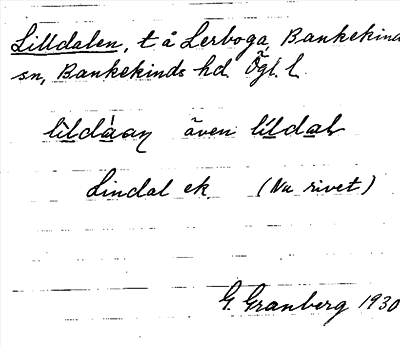 Lilldalen, t å Lerboga, Bankekind
sn, Bankekinds hd Ögl. l.
lìldàan även líldal
Lindal ek. (Nu rivet)
G. Granberg 1930